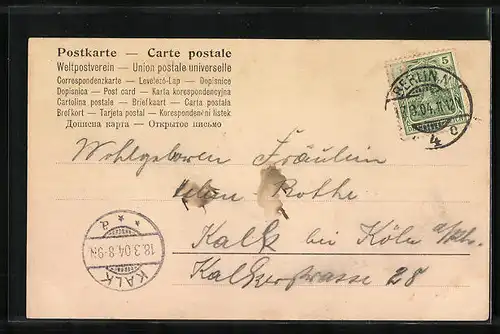 Postkarte — Carte postale
Weltpostverein — Union postale universelle
Correspondenzkarte — Levelező-Lap — Dopisnice
Dopisnica — Post card — Karta korespondencyjna
Cartolina postale — Briefkaart — Carta postala
Brefkort — Tarjeta postal — Korespondenční listek
Дописна карта — Открытое письмо
5
BERLIN, N.
3.04. 11-12
4
Wohlgeboren Fräulein
Rothe
Kalk bei Köln a/Rh.
Kalkerstrasse 28
18.3.04.8-9N
KALK